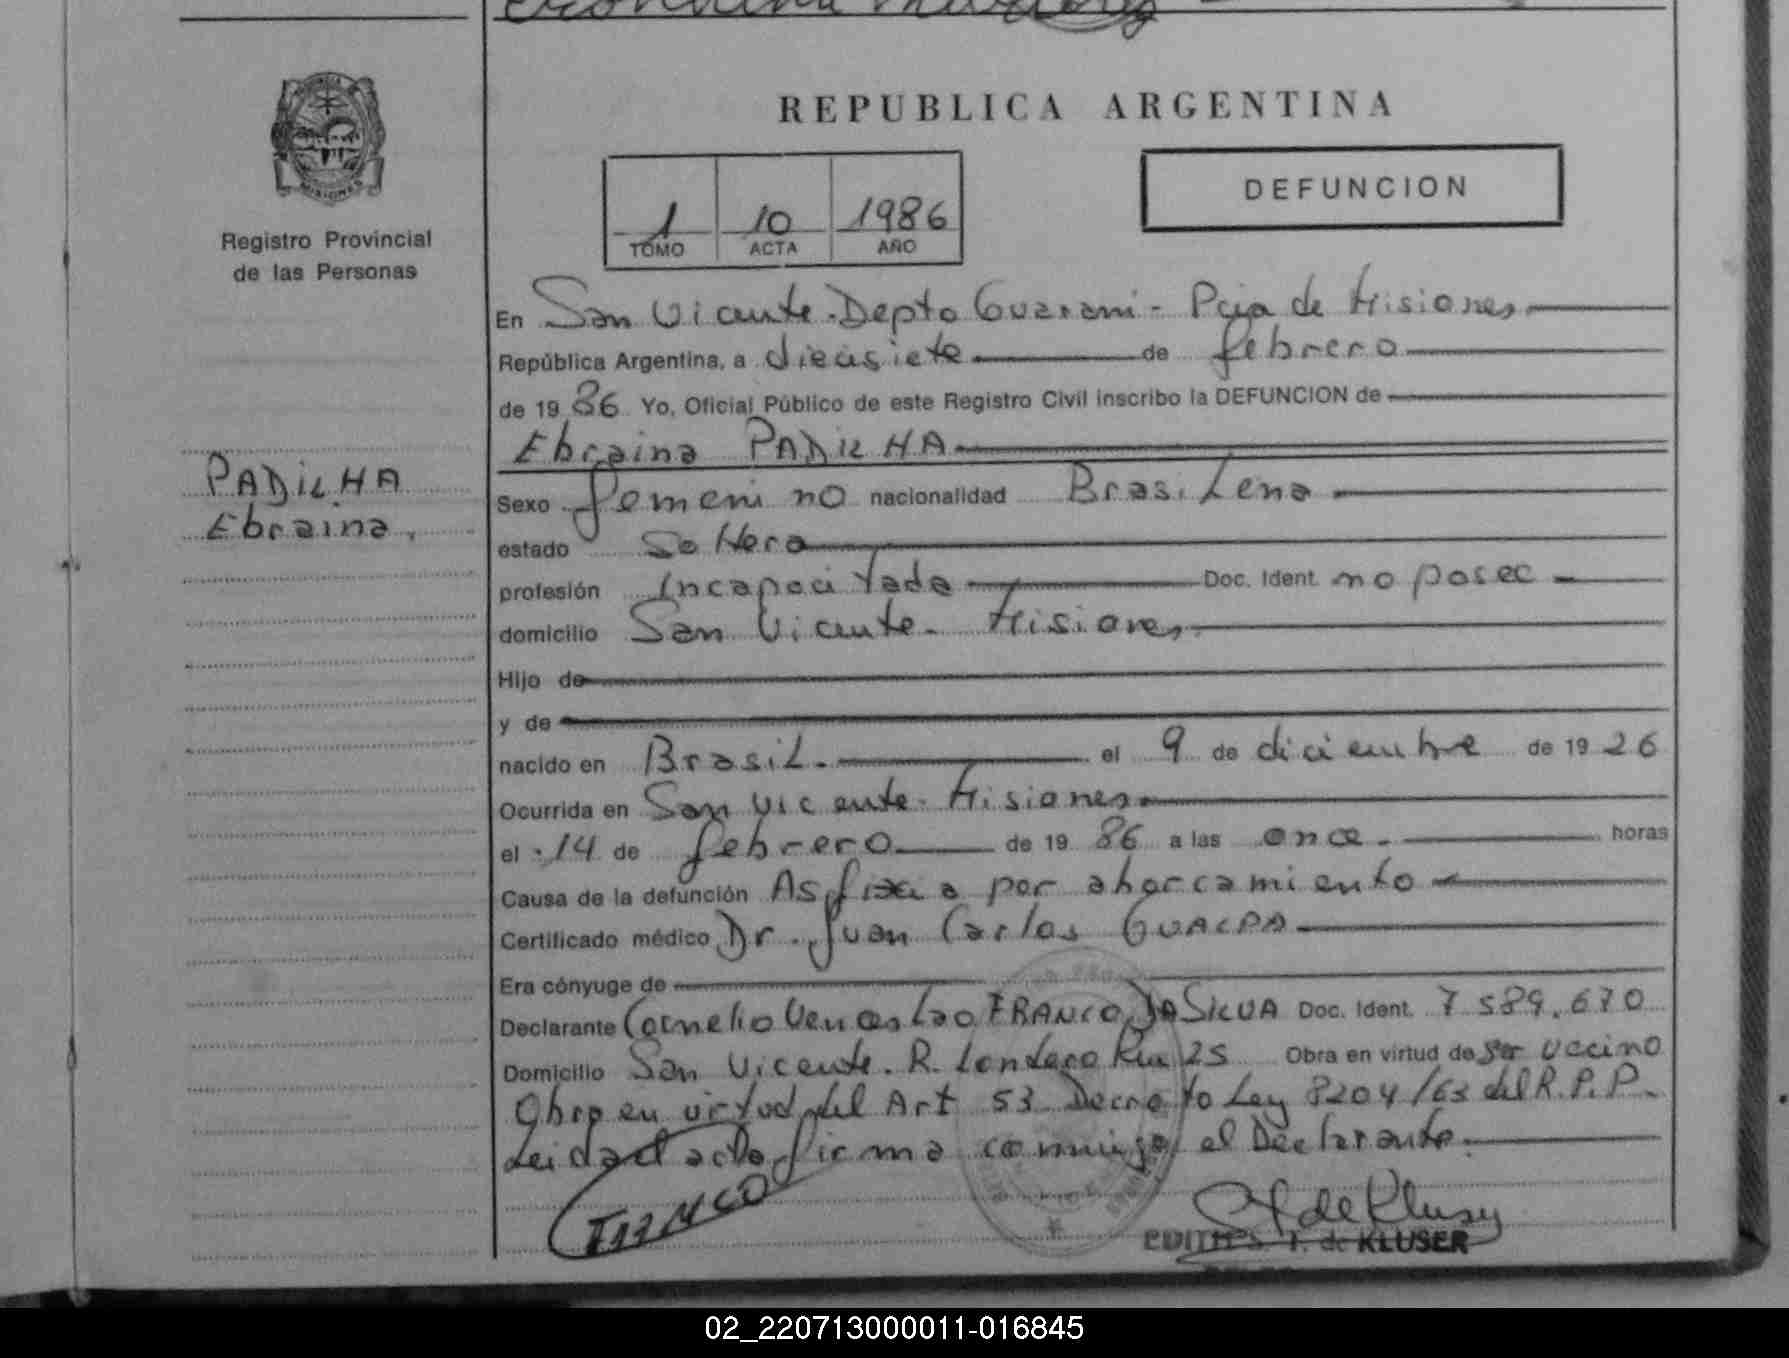 REPUBLICA ARGENTINA
DEFUNCION
1 10 1986
TOMO ACTA AÑO
MISIONES
Registro Provincial
de las Personas
En San Vicente. Depto Guarani - Pcia de Misiones
República Argentina, a diecisiete de febrero
de 1986 Yo, Oficial Público de este Registro Civil inscribo la DEFUNCION de
Ebraina PADILHA
PADILHA
Ebraina.
Sexo femenino nacionalidad Brasilena
estado Soltera
profesión Incapacitada Doc. Ident. no posee
domicilio San Vicente. Misiones
Hijo de
y de
nacido en Brasil. el 9 de diciembre de 1926
Ocurrida en San Vicente. Misiones
el 14 de febrero de 1986 a las once. horas
Causa de la defunción Asfixia por ahorcamiento
Certificado médico Dr. Juan Carlos GUALPA
Era cónyuge de
Declarante Cornelio Venceslao FRANCO DA SILVA Doc. Ident. 7589.670
Domicilio San Vicente. R. Londero Km 25 Obra en virtud de ser vecino
Obro en virtud del Art 53 Decreto Ley 8204/63 del R.P.P.
Leida el acta firma conmigo el Declarante.
FRANCO
de Kluser
EDITH S. T. de KLUSER
02_220713000011-016845